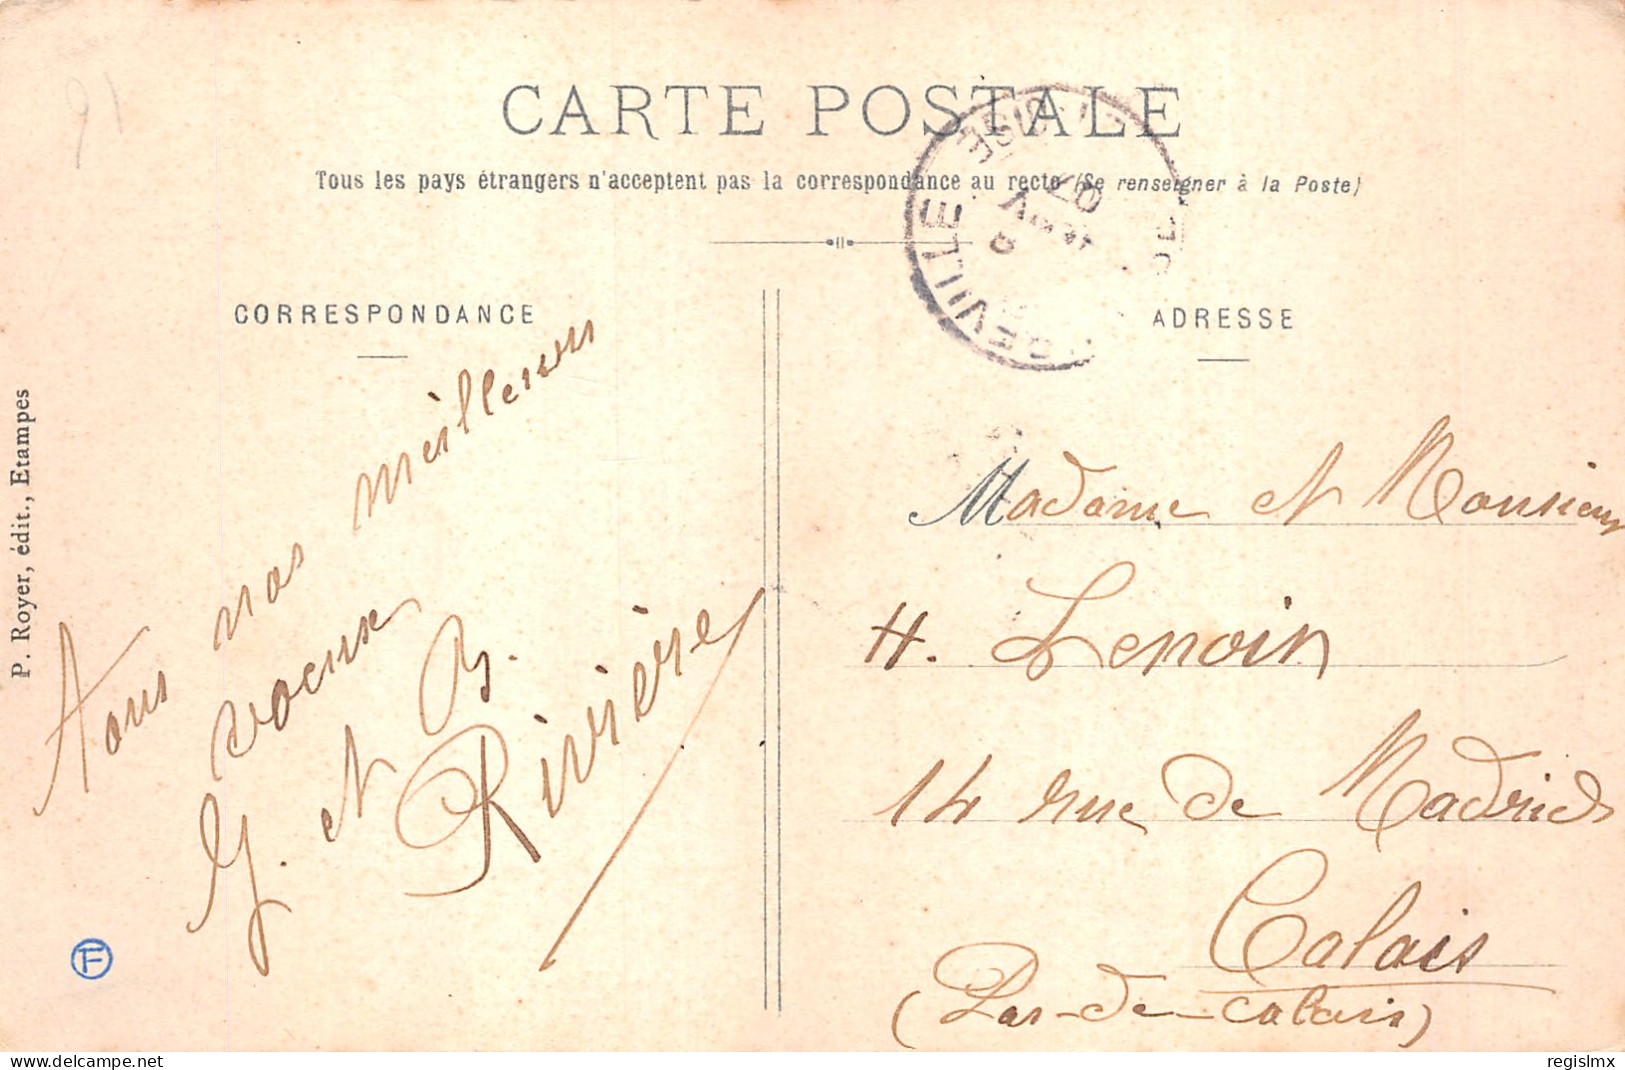 91
CARTE POSTALE
Tous les pays étrangers n'acceptent pas la correspondance au recto (Se renseigner à la Poste)
CORRESPONDANCE
Tous nos meilleurs
voeux
G. et B.
Rivière
P. Royer, édit., Etampes
F
ADRESSE
07
Madame et Monsieur
H. Lenoir
14 rue de Madrid
Calais
(Pas-de-Calais)
regislmx